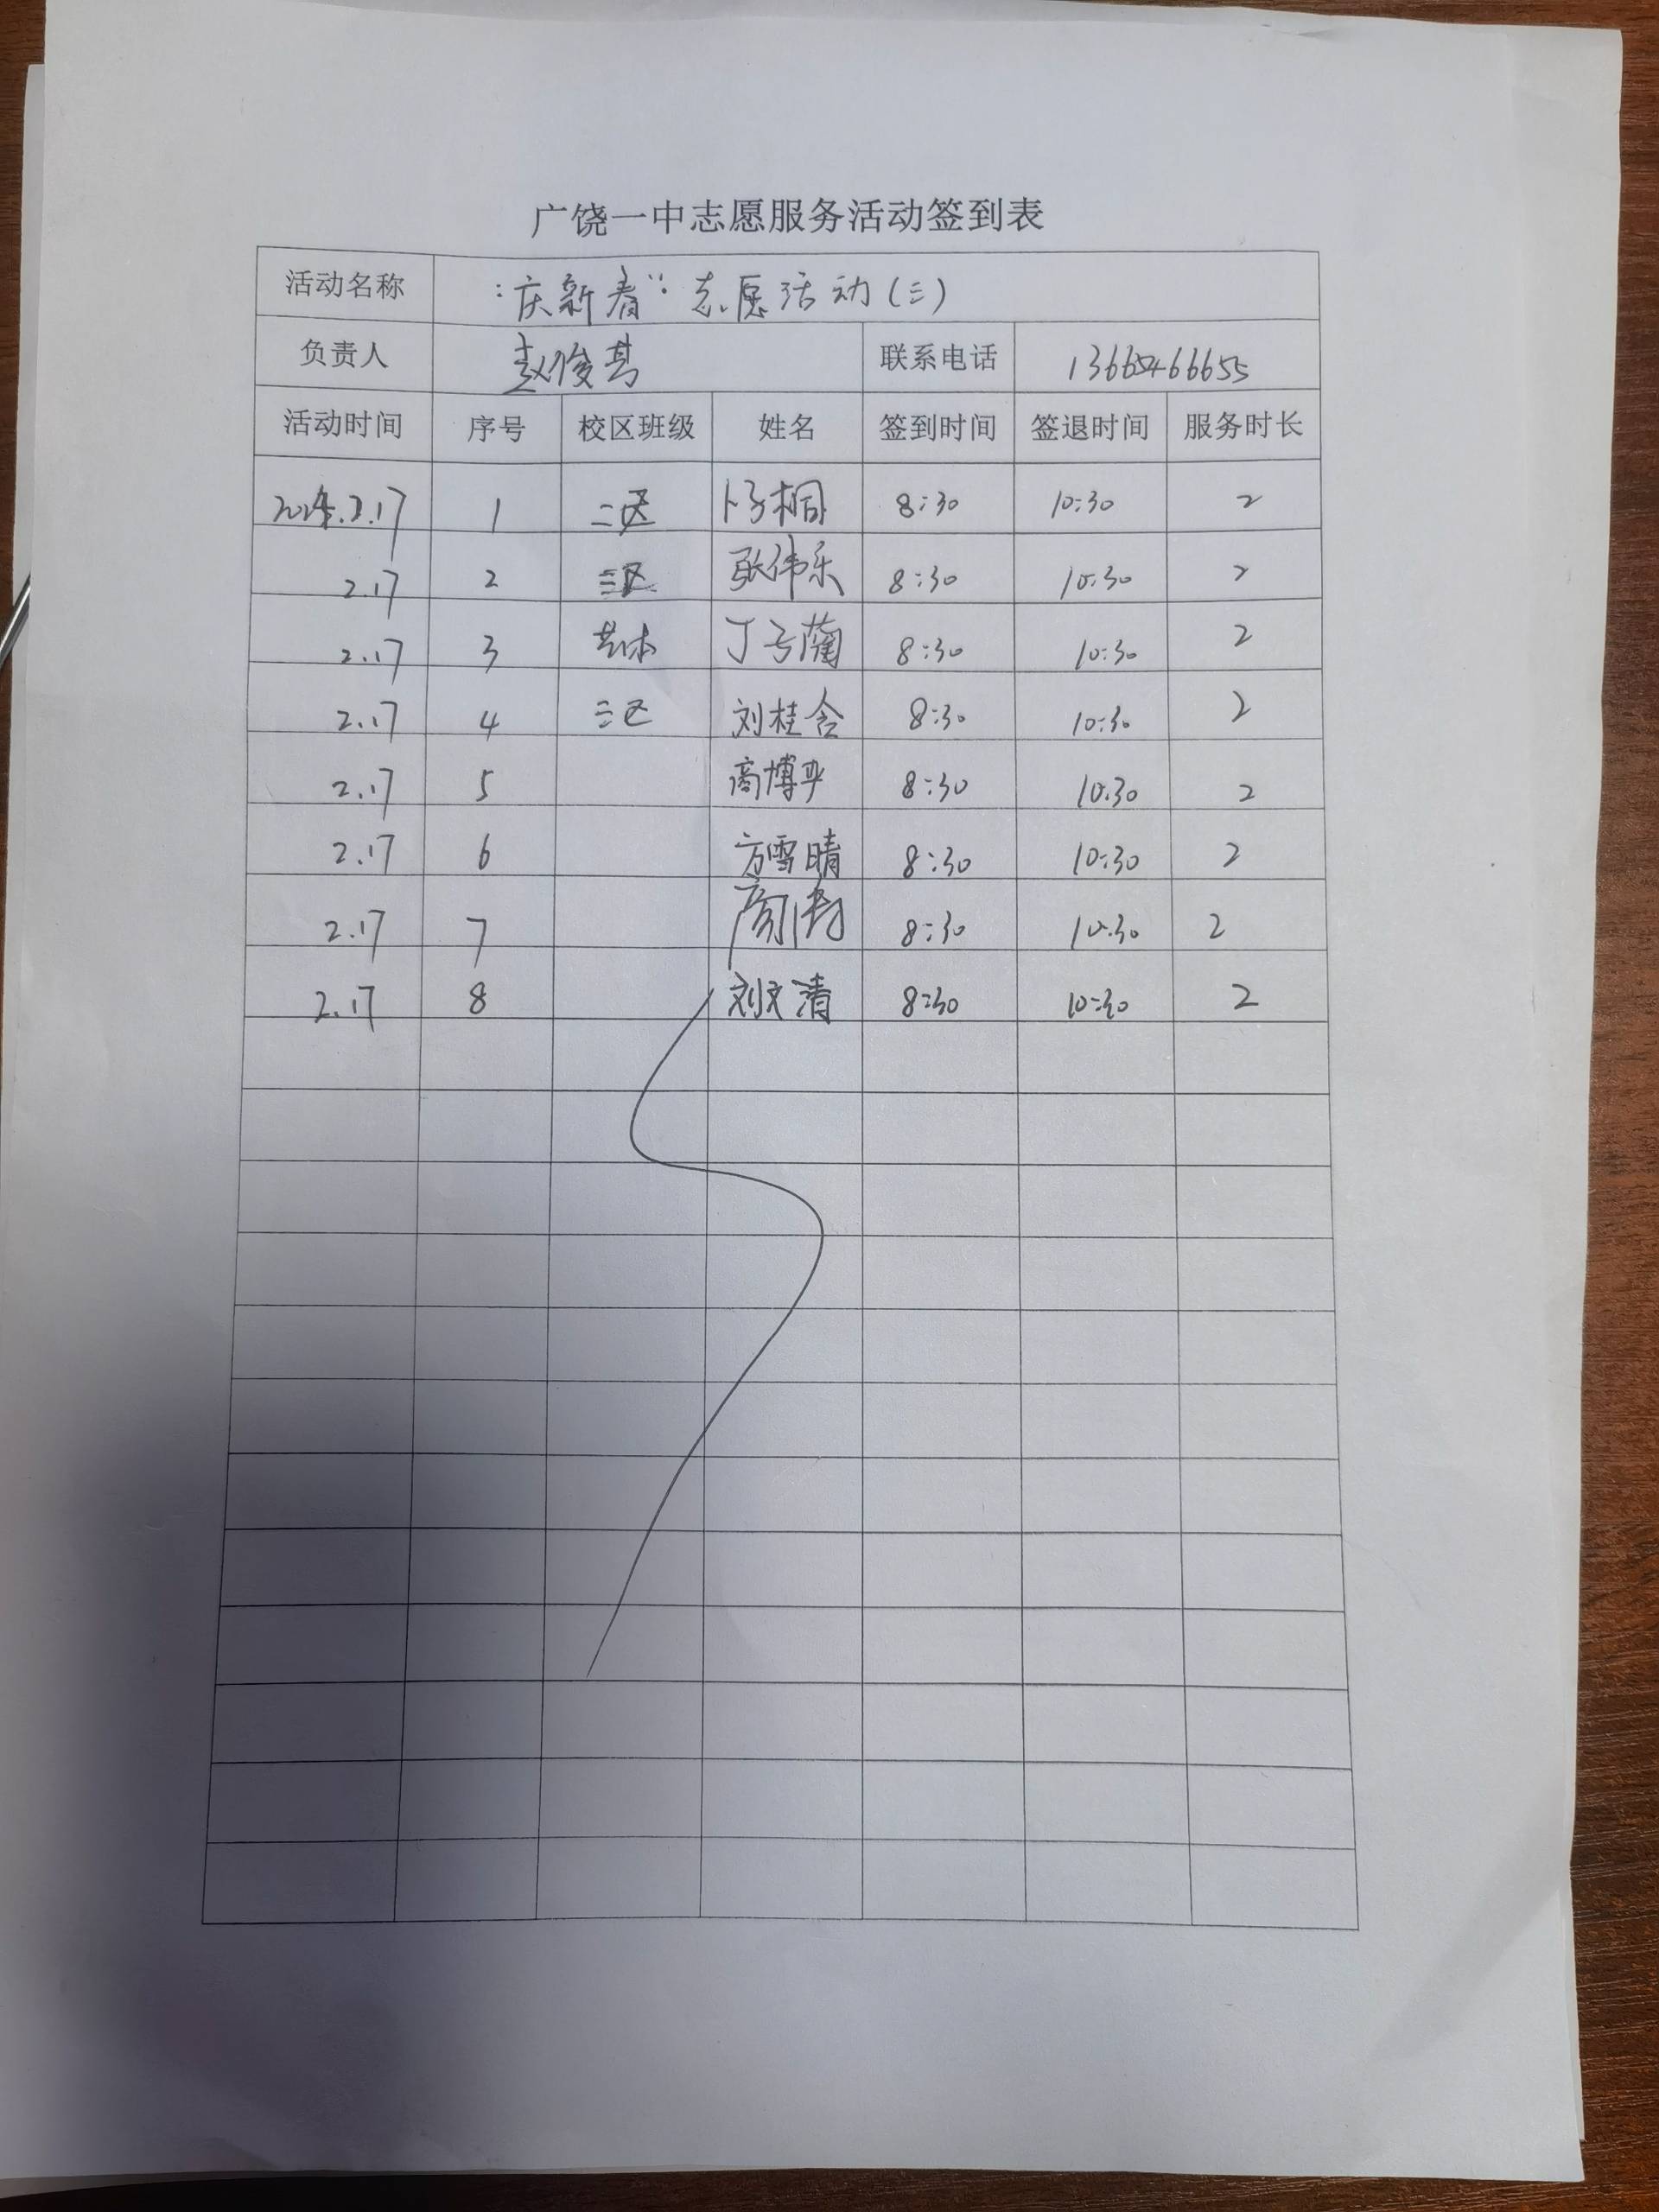 广饶一中志愿服务活动签到表
活动名称 "庆新春"志愿活动(三)
负责人 赵俊其 联系电话
活动时间 序号 校区班级 姓名 签到时间 签退时间 服务时长
2.17 1 二区 卜子桐 8:30 10:30 2
2.17 2 三区 张伟乐 8:30 10:30 2
2.17 3 艺体 丁子蔺 8:30 10:30 2
2.17 4 三区 刘桂含 8:30 10:30 2
2.17 5 商博平 8:30 10:30 2
2.17 6 方雪晴 8:30 10:30 2
2.17 7 8:30 10:30 2
2.17 8 刘文清 8:30 10:30 2